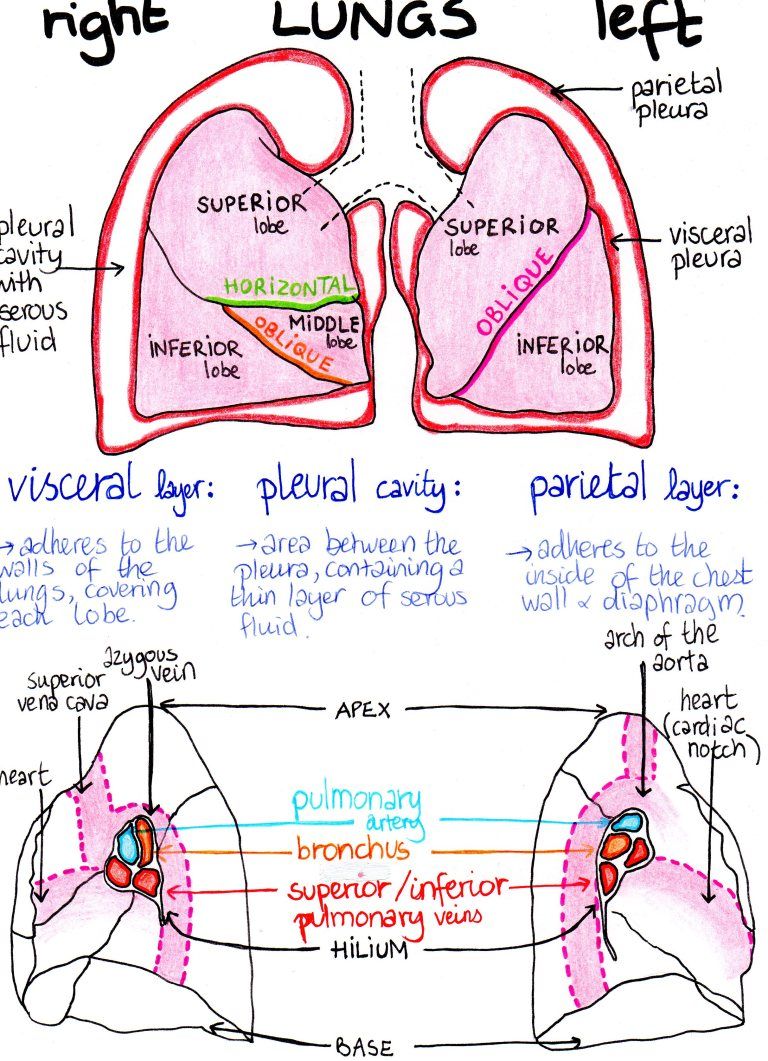 right LUNGS left
parietal
pleura
SUPERIOR
lobe
SUPERIOR
lobe
pleural
cavity
with
serous
fluid
visceral
pleura
HORIZONTAL
OBLIQUE
MIDDLE
lobe
OBLIQUE
INFERIOR
lobe
INFERIOR
lobe
visceral layer:
→ adheres to the
walls of the
lungs, covering
each lobe.
pleural cavity:
→ area between the
pleura, containing a
thin layer of serous
fluid.
parietal layer:
→ adheres to the
inside of the chest
wall & diaphragm.
azygous
vein
superior
vena cava
heart
APEX
arch of the
aorta
heart
(cardiac
notch)
pulmonary
artery
bronchus
superior/inferior
pulmonary veins
HILIUM
BASE